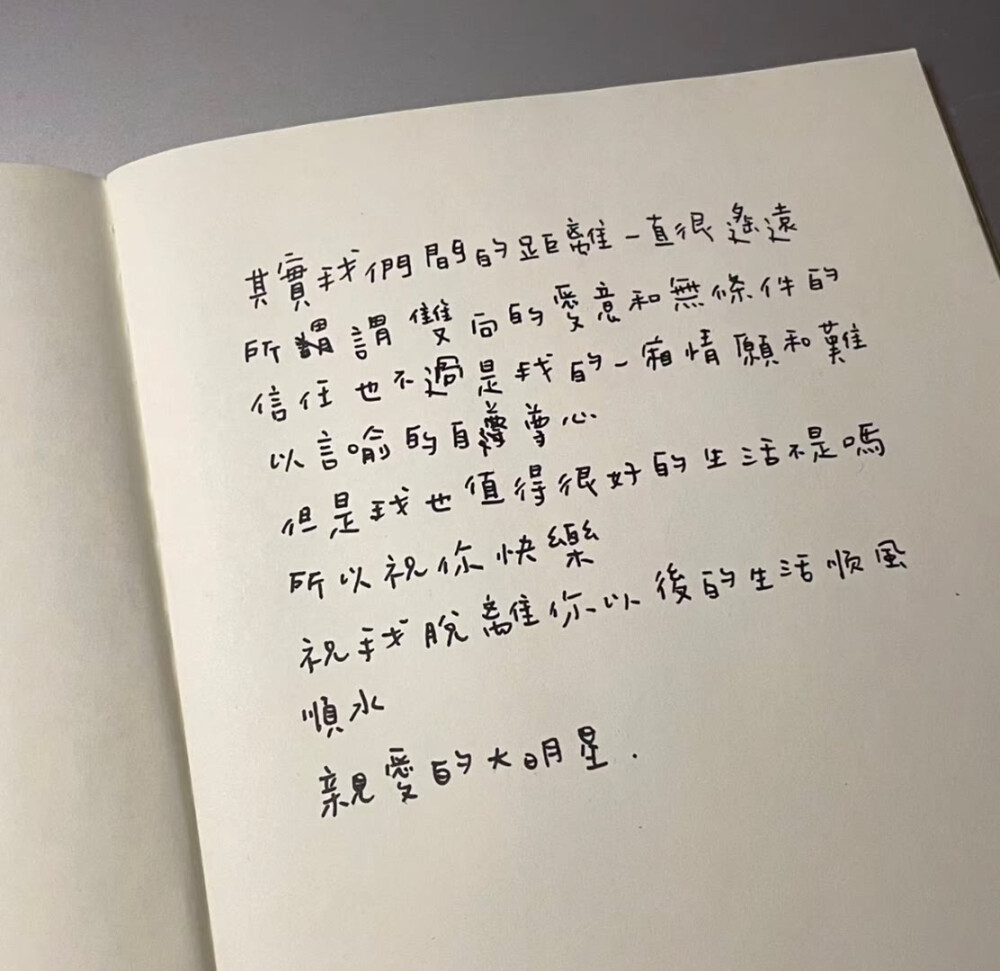 其實我們間的距離一直很遙遠
所謂雙向的愛意和無條件的
信任也不過是我的一廂情願和難
以言喻的自尊心
但是我也值得很好的生活不是嗎
所以祝你快樂
祝我脫離你以後的生活順風
順水
親愛的大明星.